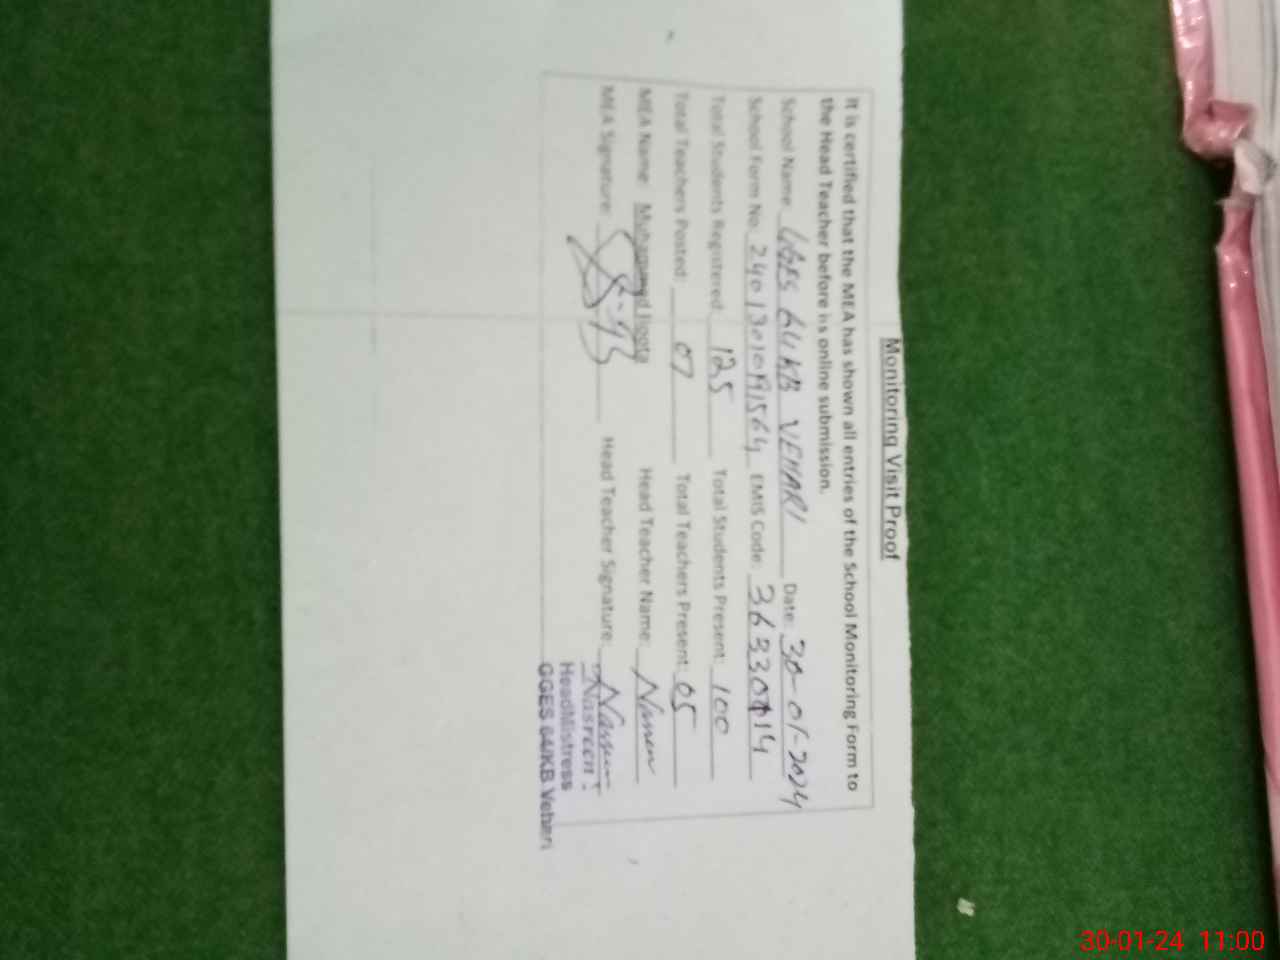 Monitoring Visit Proof
It is certified that the MEA has shown all entries of the School Monitoring Form to
the Head Teacher before is online submission.
School Name: GGES 64 KB VEHARI Date: 30-01-2024
School Form No: EMIS Code:
Total Students Registered: 125 Total Students Present: 100
Total Teachers Posted: 07 Total Teachers Present: 05
MEA Name: Muhammad Head Teacher Name:
MEA Signature: Head Teacher Signature:
Nasreen
HeadMistress
GGES 64/KB Vehari
30-01-24 11:00